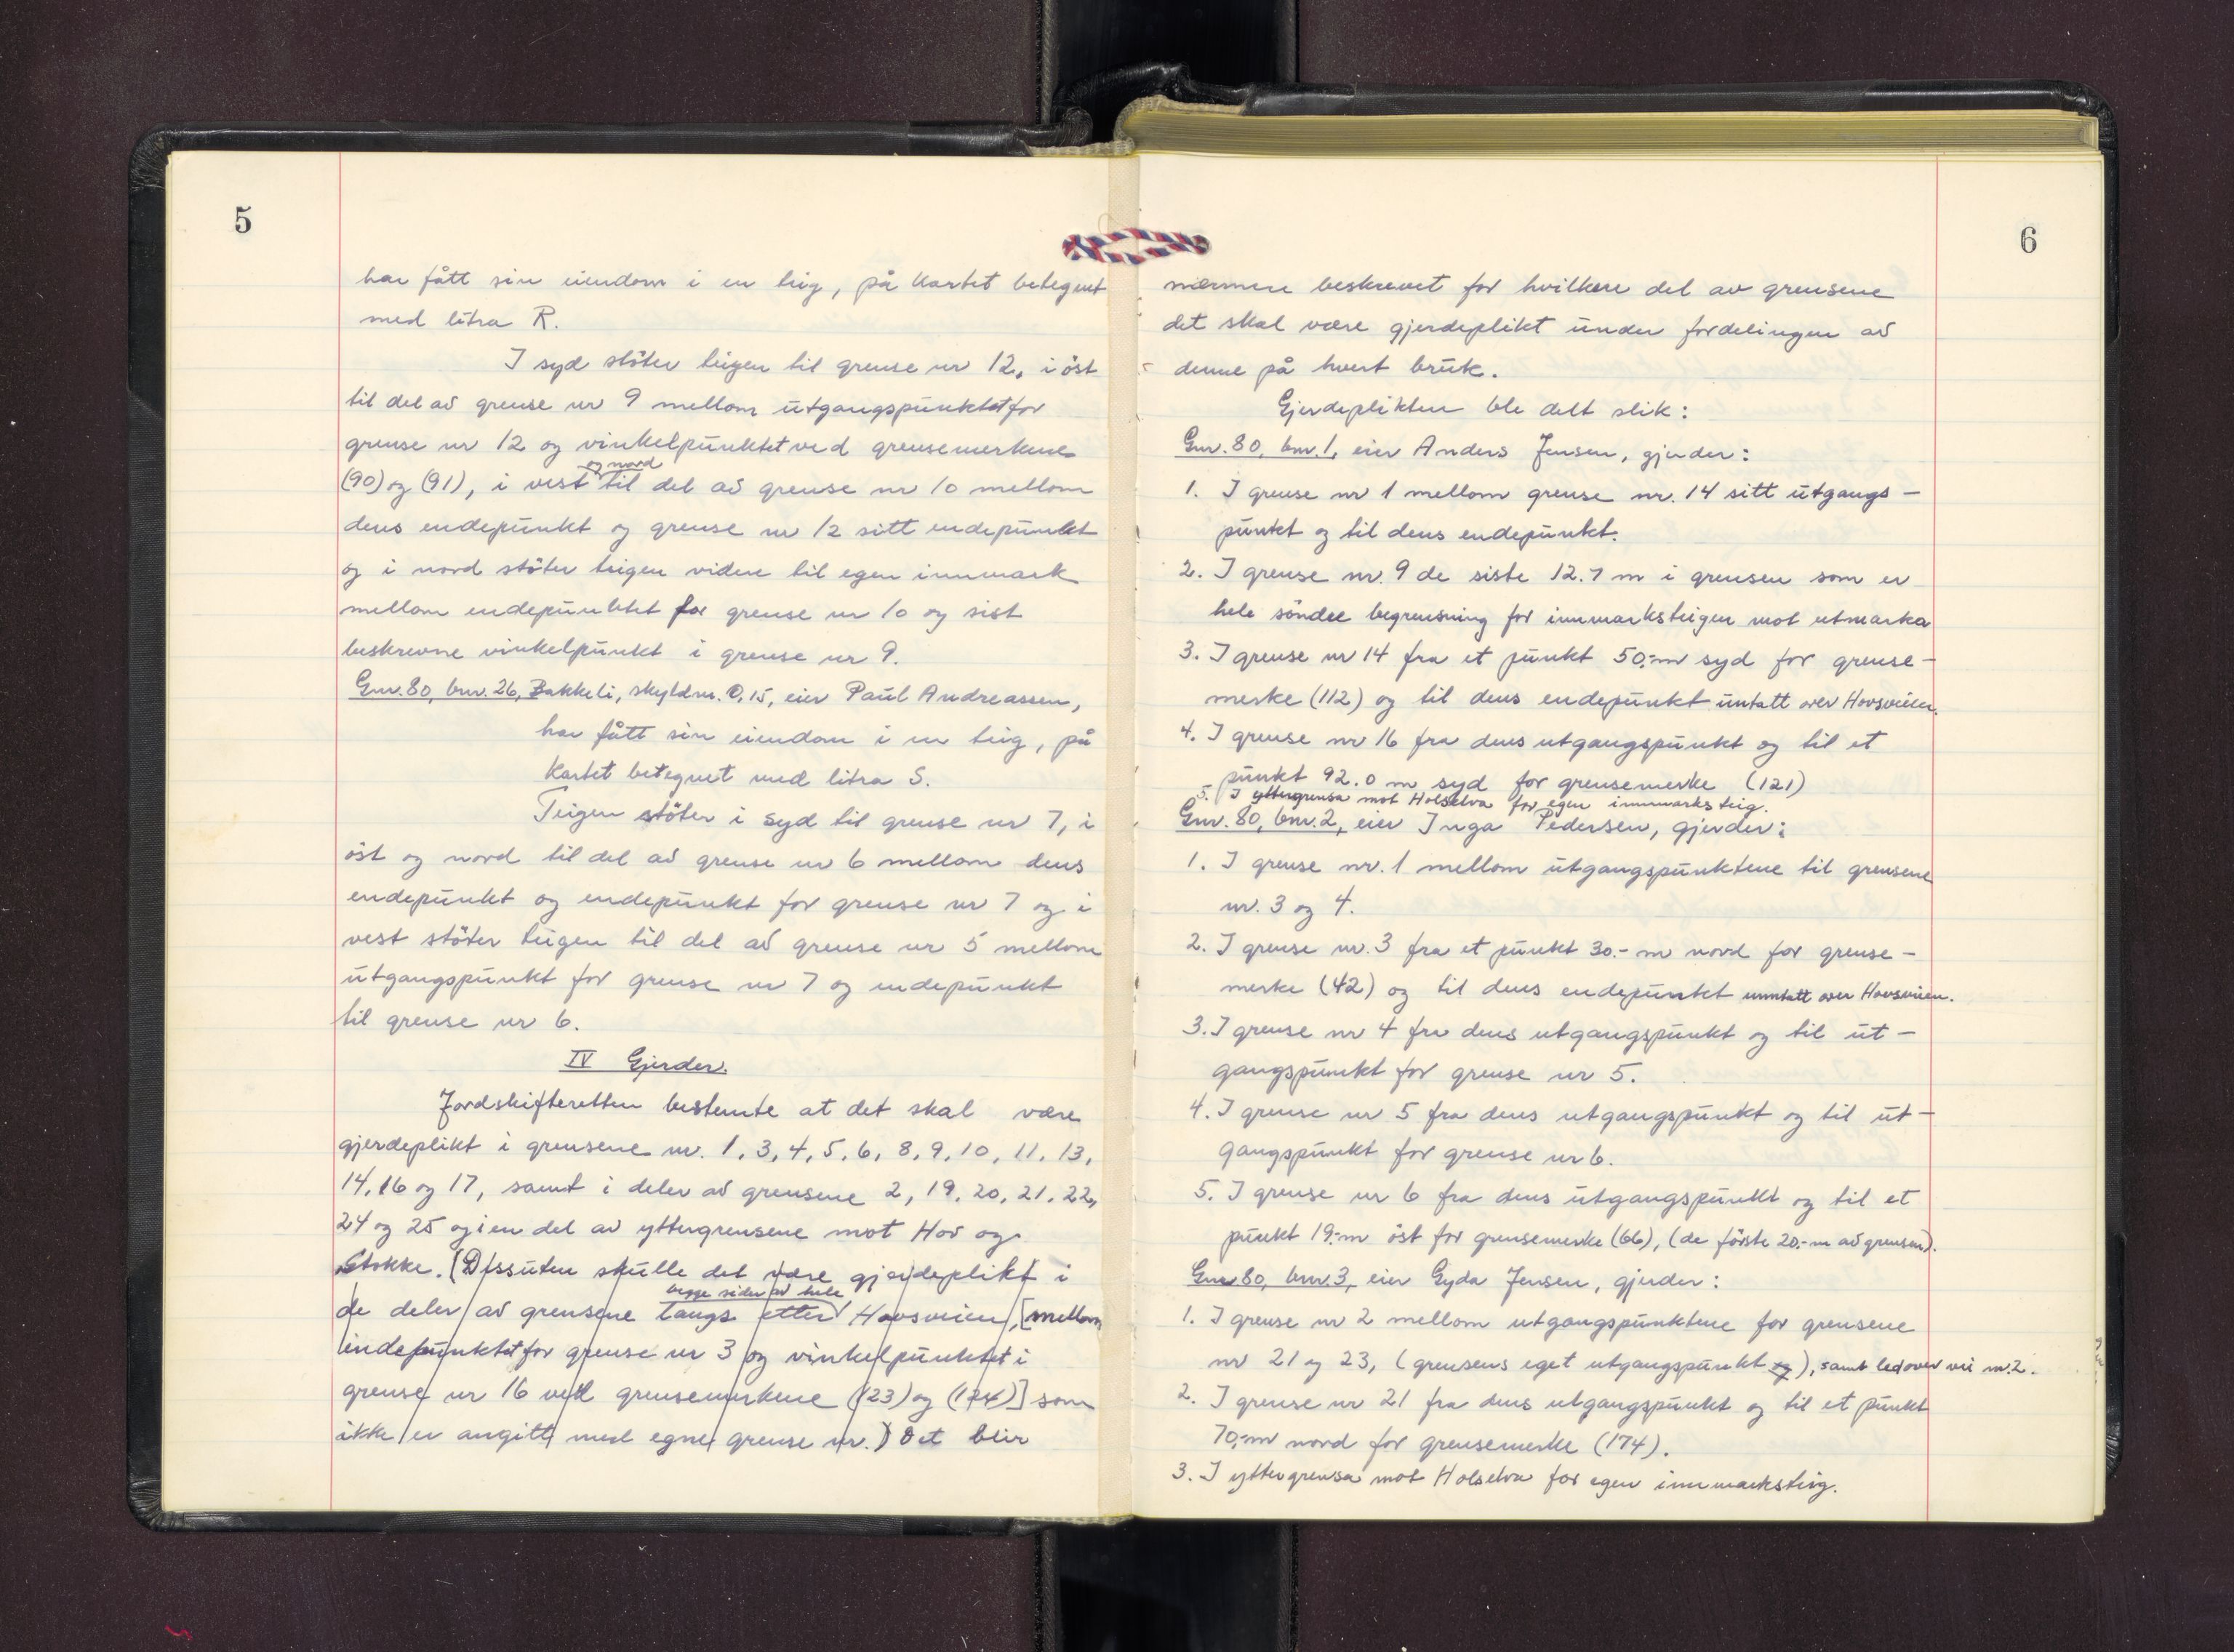 5
har fått sin eiendom i en teig, på kartet betegnet
med litra R.
I syd stöter teigen til grense nr 12, i öst
til del av grense nr 9 mellom utgangspunktet for
grense nr 12 og vinkelpunktet ved grensemerkene
og nord
(90) og (91), i vest til del av grense nr 10 mellom
dens endepunkt og grense nr 12 sitt endepunkt
og i nord stöter teigen videre til egen innmark
mellom endepunktet for grense nr 10 og sist
beskrevne vinkelpunkt i grense nr 9.
Gnr. 80, bnr. 26, Bakkeli, skyldm. 0,15, eier Paul Andreassen,
har fått sin eiendom i en teig, på
kartet betegnet med litra S.
Teigen stöter i syd til grense nr 7, i
öst og nord til del av grense nr 6 mellom dens
endepunkt og endepunkt for grense nr 7 og i
vest stöter teigen til del av grense nr 5 mellom
utgangspunkt for grense nr 7 og endepunkt
til grense nr 6.
IV Gjerder.
Jordskifteretten bestemte at det skal være
gjerdeplikt i grensene nr. 1, 3, 4, 5, 6, 8, 9, 10, 11, 13,
14, 16 og 17, samt i deler av grensene 2, 19, 20, 21, 22,
24 og 25 og i en del av yttergrensene mot Hov og
Stokke. (Dessuten skulle det være gjerdeplikt i
begge sider av hele
de deler av grensene langs etter Hovsveien, [mellom
endepunktet for grense nr 3 og vinkelpunktet i
grense nr 16 ved grensemerkene (123) og (124)] som
ikke er angitt med egne grense nr.) Det blir
6
nærmere beskrevet for hvilken del av grensene
det skal være gjerdeplikt under fordelingen av
denne på hvert bruk.
Gjerdeplikten ble delt slik:
Gnr. 80, bnr. 1, eier Anders Jensen, gjerder:
1. I grense nr 1 mellom grense nr. 14 sitt utgangs-
punkt og til dens endepunkt.
2. I grense nr. 9 de siste 12.7 m i grensen som er
hele söndre begrensning for innmarksteigen mot utmarka
3. I grense nr 14 fra et punkt 50,-m syd for grense-
merke (112) og til dens endepunkt untatt over Hovsveien.
4. I grense nr 16 fra dens utgangspunkt og til et
punkt 92.0 m syd for grensemerke (121)
5. I yttergrensa mot Holselva for egen innmarksteig.
Gnr. 80, bnr. 2, eier Inga Pedersen, gjerder:
1. I grense nr. 1 mellom utgangspunktene til grensene
nr. 3 og 4.
2. I grense nr. 3 fra et punkt 30.- m nord for grense-
merke (42) og til dens endepunkt unntatt over Hovsveien.
3. I grense nr 4 fra dens utgangspunkt og til ut-
gangspunkt for grense nr 5.
4. I grense nr 5 fra dens utgangspunkt og til ut-
gangspunkt for grense nr 6.
5. I grense nr 6 fra dens utgangspunkt og til et
punkt 19.-m öst for grensemerke (66), (de förste 20.-m av grensen).
Gnr 80, bnr. 3, eier Gyda Jensen, gjerder:
1. I grense nr 2 mellom utgangspunktene for grensene
nr 21 og 23, (grensens eget utgangspunkt og), samt led over vei nr. 2.
2. I grense nr 21 fra dens utgangspunkt og til et punkt
70,-m nord for grensemerke (174).
3. I yttergrensa mot Holselva for egen innmarksteig.